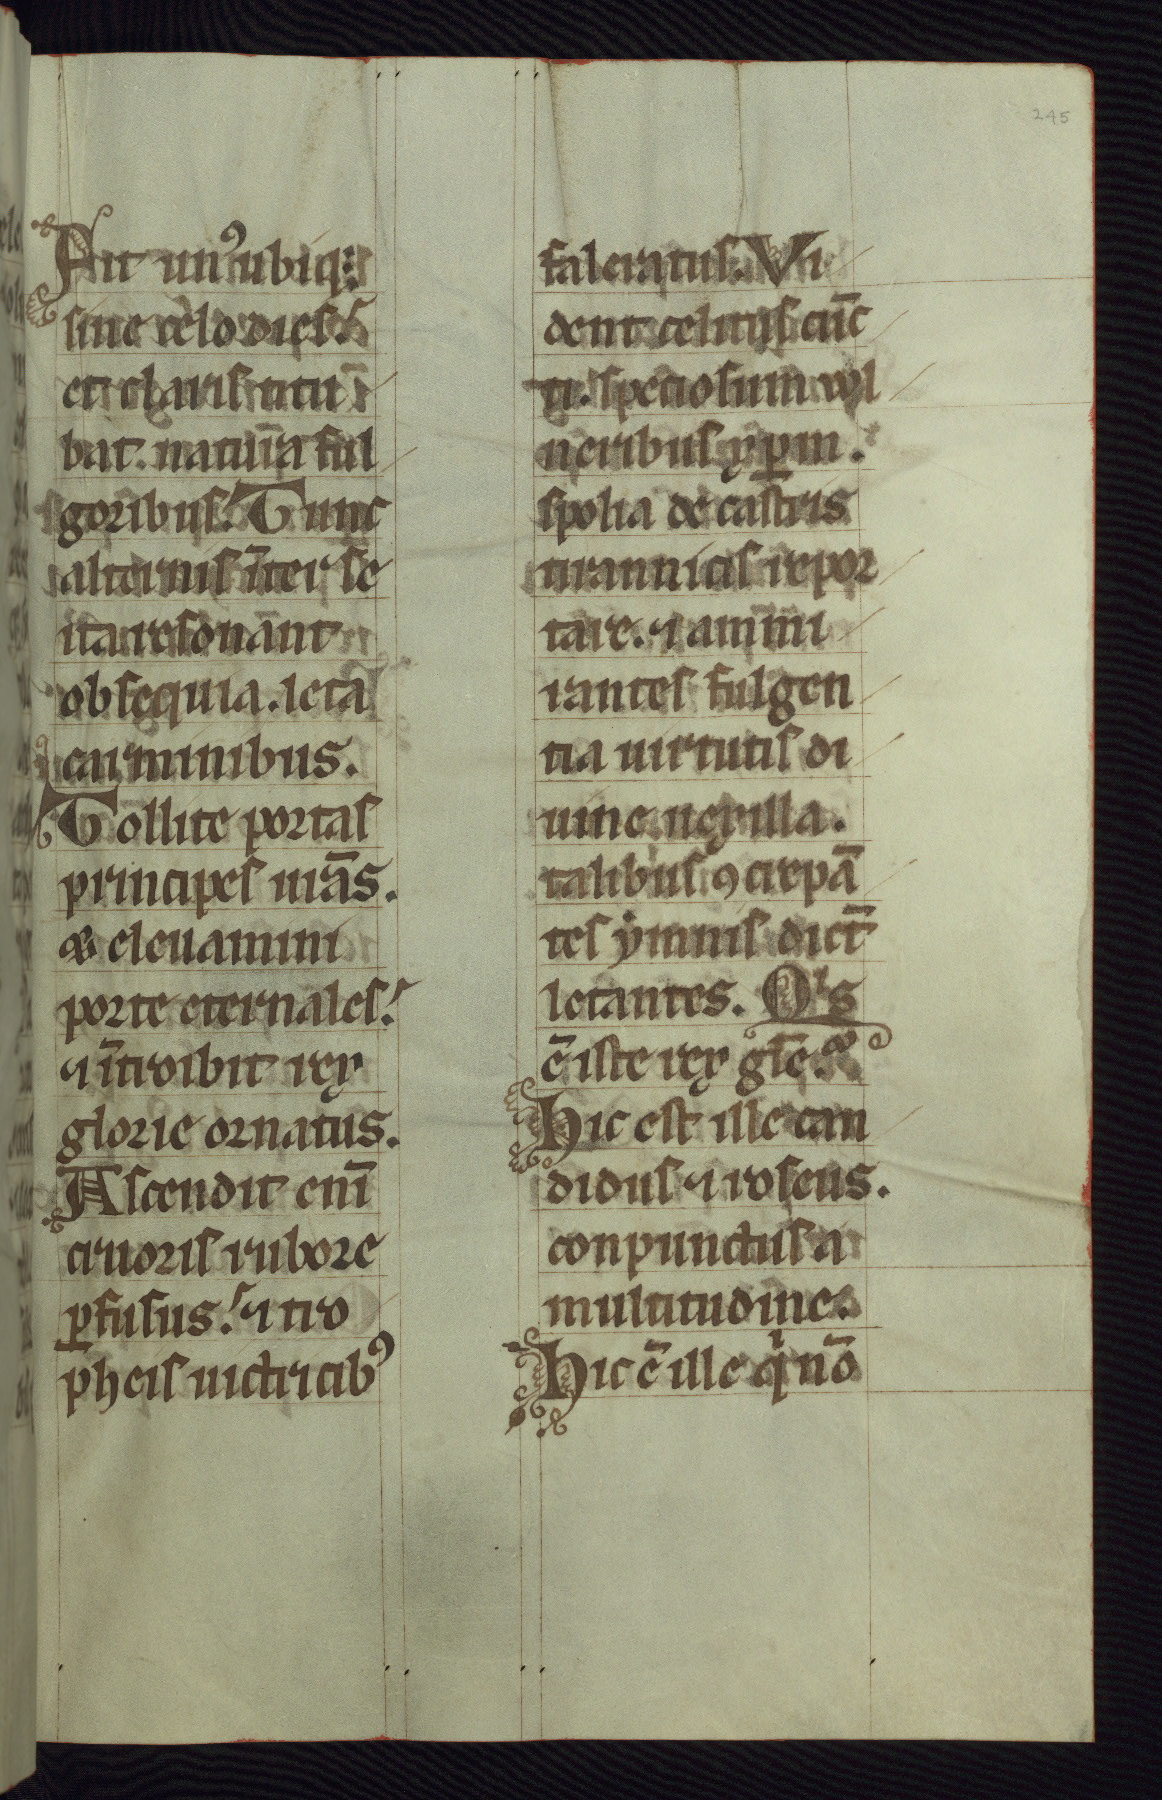 245
Fit un⁹ ubiq;
sine celo dies.
et claris titu
bat. natura ful
goribus. Tunc
alternis īter se
ita resonant
obsequia. leta
carminibus.
Tollite portas
principes urās.
& eleuamini
porte eternales.
⁊ ītroibit rex
glorie ornatus.
Ascendit enī
cruoris rubore
ꝑfusus. ⁊ tro
pheis uictricib⁹
faleratus. Vi
dent celitus cūc
ti. speciosum vvl
neribus xp̄m.
spolia de castris
tirannicis repor
tare. ⁊ ammi
rantes fulgen
tia uirtutis di
uine uexilla.
talibus ꝯcrepā
tes ymnis dict̄
letantes. Qⁱs
ē iste rex gl̄e.
Hic est ille can
didus ⁊ roseus.
conpunctus a
multitudine.
Hic ē ille qⁱ nō